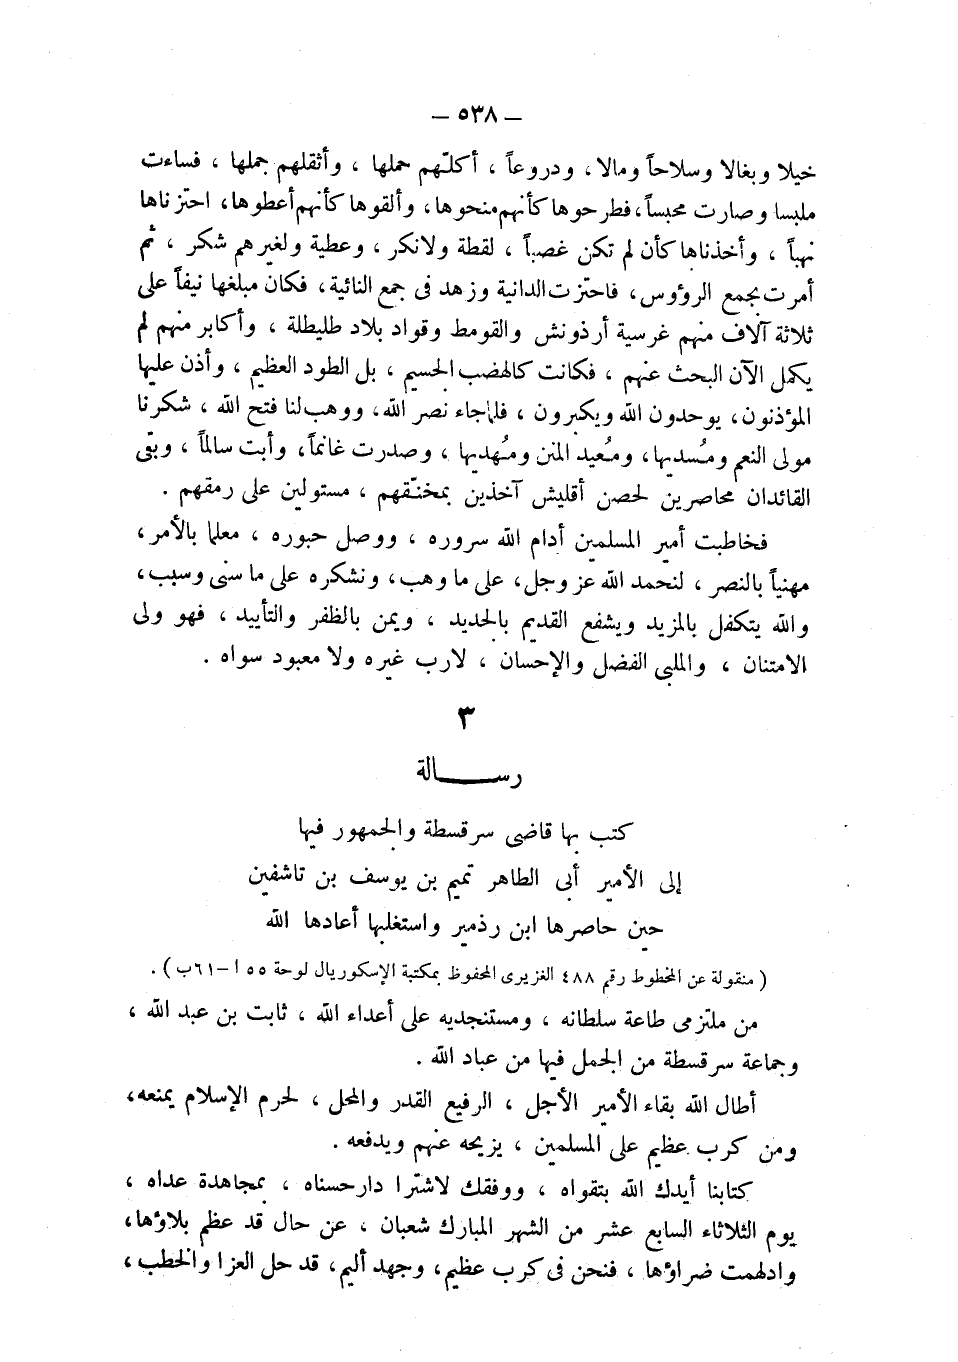 — ٥٣٨ —
خيلا وبغالا وسلاحاً ومالا ، ودروعاً ، أكلّهم حملها ، وأثقلهم جملها ، فساءت
ملبسا وصارت محبساً ، فطرحوها كأنهم منحوها ، وألقوها كأنهم أعطوها ، احتزناها
نهباً ، وأخذناها كأن لم تكن غصباً ، لقطة ولا نكر ، وعطية ولغيرهم شكر ، ثم
أمرت بجمع الرؤوس ، فاحتزت الدانية وزهد فى جمع النائية ، فكان مبلغها نيفاً على
ثلاثة آلاف منهم غرسية أردونش والقومط وقواد بلاد طليطلة ، وأكابر منهم لم
يكمل الآن البحث عنهم ، فكانت كالهضب الجسيم ، بل الطود العظيم ، وأذن عليها
المؤذنون ، يوحدون الله ويكبرون ، فلما جاء نصر الله ، ووهب لنا فتح الله ، شكرنا
مولى النعم ومُسديها ، ومُعيد المنن ومُهديها ، وصدرت غانماً ، وأبت سالماً ، وبقى
القائدان محاصرين لحصن أقليش آخذين بمخنّقهم ، مستولين على رمقهم .
فخاطبت أمير المسلمين أدام الله سروره ، ووصل حبوره ، معلما بالأمر ،
مهنياً بالنصر ، لنحمد الله عز وجل ، على ما وهب ، ونشكره على ما سنى وسبب ،
والله يتكفل بالمزيد ويشفع القديم بالجديد ، ويمن بالظفر والتأييد ، فهو ولى
الامتنان ، والملبى الفضل والإحسان ، لارب غيره ولا معبود سواه .
٣
رســـــالة
كتب بها قاضى سرقسطة والجمهور فيها
إلى الأمير أبى الطاهر تميم بن يوسف بن تاشفين
حين حاصرها ابن رذمير واستغلبها أعادها الله
( منقولة عن المخطوط رقم ٤٨٨ الغزيرى المحفوظ بمكتبة الإسكوريال لوحة ٥٥ ا – ٦١ ب ) .
من ملتزمى طاعة سلطانه ، ومستنجديه على أعداء الله ، ثابت بن عبد الله ،
وجماعة سرقسطة من الجمل فيها من عباد الله .
أطال الله بقاء الأمير الأجل ، الرفيع القدر والمحل ، لحرم الإسلام يمنعه ،
ومن كرب عظيم على المسلمين ، يزيحه عنهم ويدفعه .
كتابنا أيدك الله بتقواه ، ووفقك لاشترا دار حسناه ، بمجاهدة عداه ،
يوم الثلاثاء السابع عشر من الشهر المبارك شعبان ، عن حال قد عظم بلاؤها ،
وادلهمت ضراؤها ، فنحن فى كرب عظيم ، وجهد أليم ، قد حل العزا والخطب ،